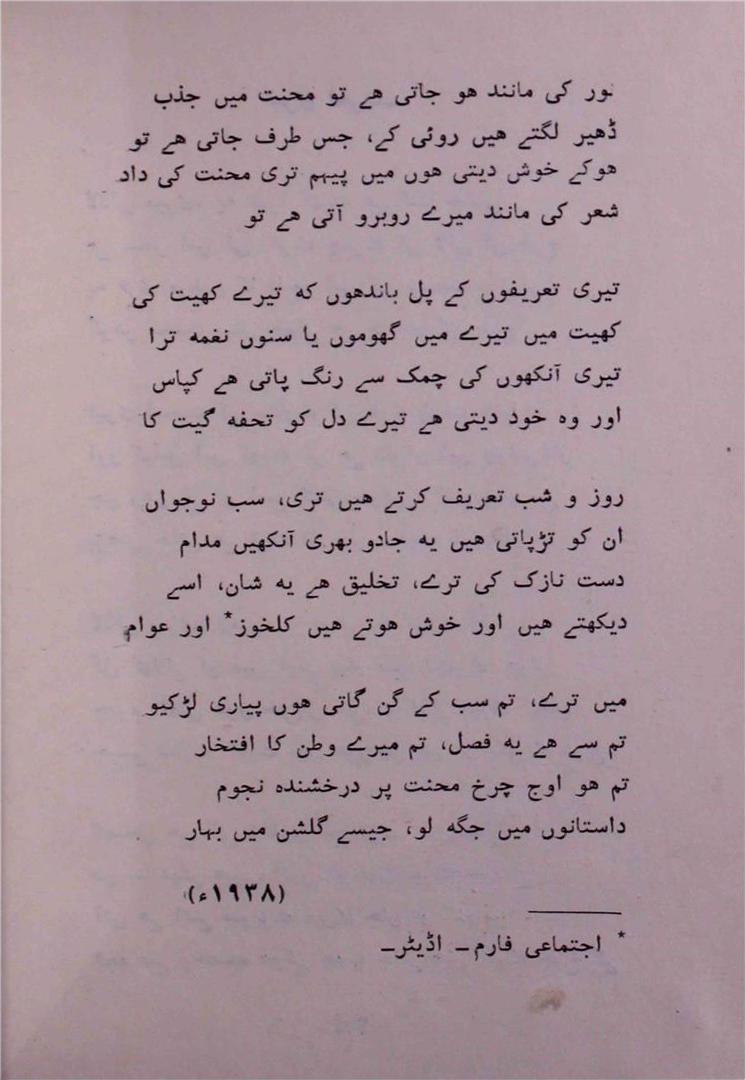 نور کی مانند ہو جاتی ہے تو محنت میں جذب
ڈھیر لگتے ہیں روئی کے، جس طرف جاتی ہے تو
ہوکے خوش دیتی ہوں میں پیہم تری محنت کی داد
شعر کی مانند میرے روبرو آتی ہے تو
تیری تعریفوں کے پل باندھوں کہ تیرے کھیت کی
کھیت میں تیرے میں گھوموں یا سنوں نغمہ ترا
تیری آنکھوں کی چمک سے رنگ پاتی ہے کپاس
اور وہ خود دیتی ہے تیرے دل کو تحفہ گیت کا
روز و شب تعریف کرتے ہیں تری، سب نوجواں
ان کو تڑپاتی ہیں یہ جادو بھری آنکھیں مدام
دست نازک کی ترے، تخلیق ہے یہ شان، اسے
دیکھتے ہیں اور خوش ہوتے ہیں کلخوز* اور عوام
میں ترے، تم سب کے گن گاتی ہوں پیاری لڑکیو
تم سے ہے یہ فصل، تم میرے وطن کا افتخار
تم ہو اوج چرخ محنت پر درخشندہ نجوم
داستانوں میں جگہ لو، جیسے گلشن میں بہار
(۱۹۳۸ء)
* اجتماعی فارم۔ اڈیٹر۔